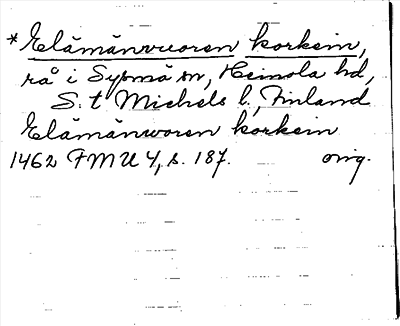 *Elämänvuoren korkein,
rå i Sysmä sn, Heinola hd,
S:t Michels l., Finland
Elämänworen korkein
1462 FMU 4, s. 187. orig.